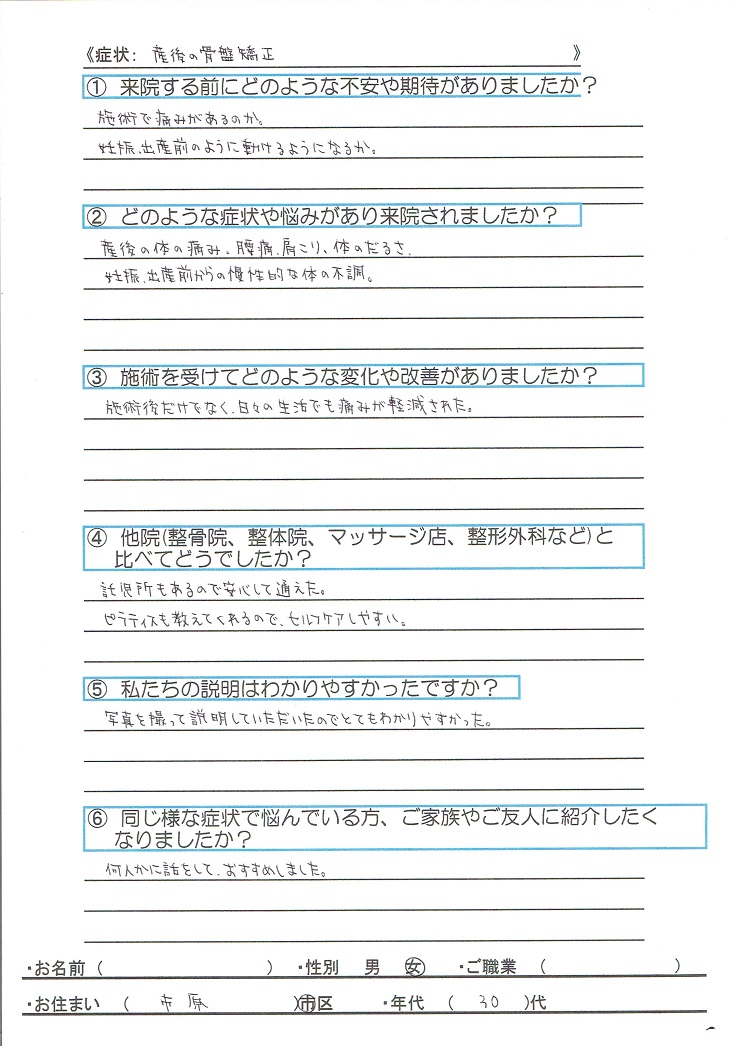 《症状: 産後の骨盤矯正 》
① 来院する前にどのような不安や期待がありましたか?
施術で痛みがあるのか。
妊娠、出産前のように動けるようになるか。
② どのような症状や悩みがあり来院されましたか?
産後の体の痛み。腰痛、肩こり、体のだるさ、
妊娠、出産前からの慢性的な体の不調。
③ 施術を受けてどのような変化や改善がありましたか?
施術後だけでなく、日々の生活でも痛みが軽減された。
④ 他院(整骨院、整体院、マッサージ店、整形外科など)と
比べてどうでしたか?
託児所もあるので安心して通えた。
ピラティスも教えてくれるので、セルフケアしやすい。
⑤ 私たちの説明はわかりやすかったですか?
写真を撮って説明していただいたのでとてもわかりやすかった。
⑥ 同じ様な症状で悩んでいる方、ご家族やご友人に紹介したく
なりましたか?
何人かに話をして、おすすめしました。
・お名前 ( ) ・性別 男 女 ・ご職業 ( )
・お住まい ( 市原 )市区 ・年代 ( 30 )代